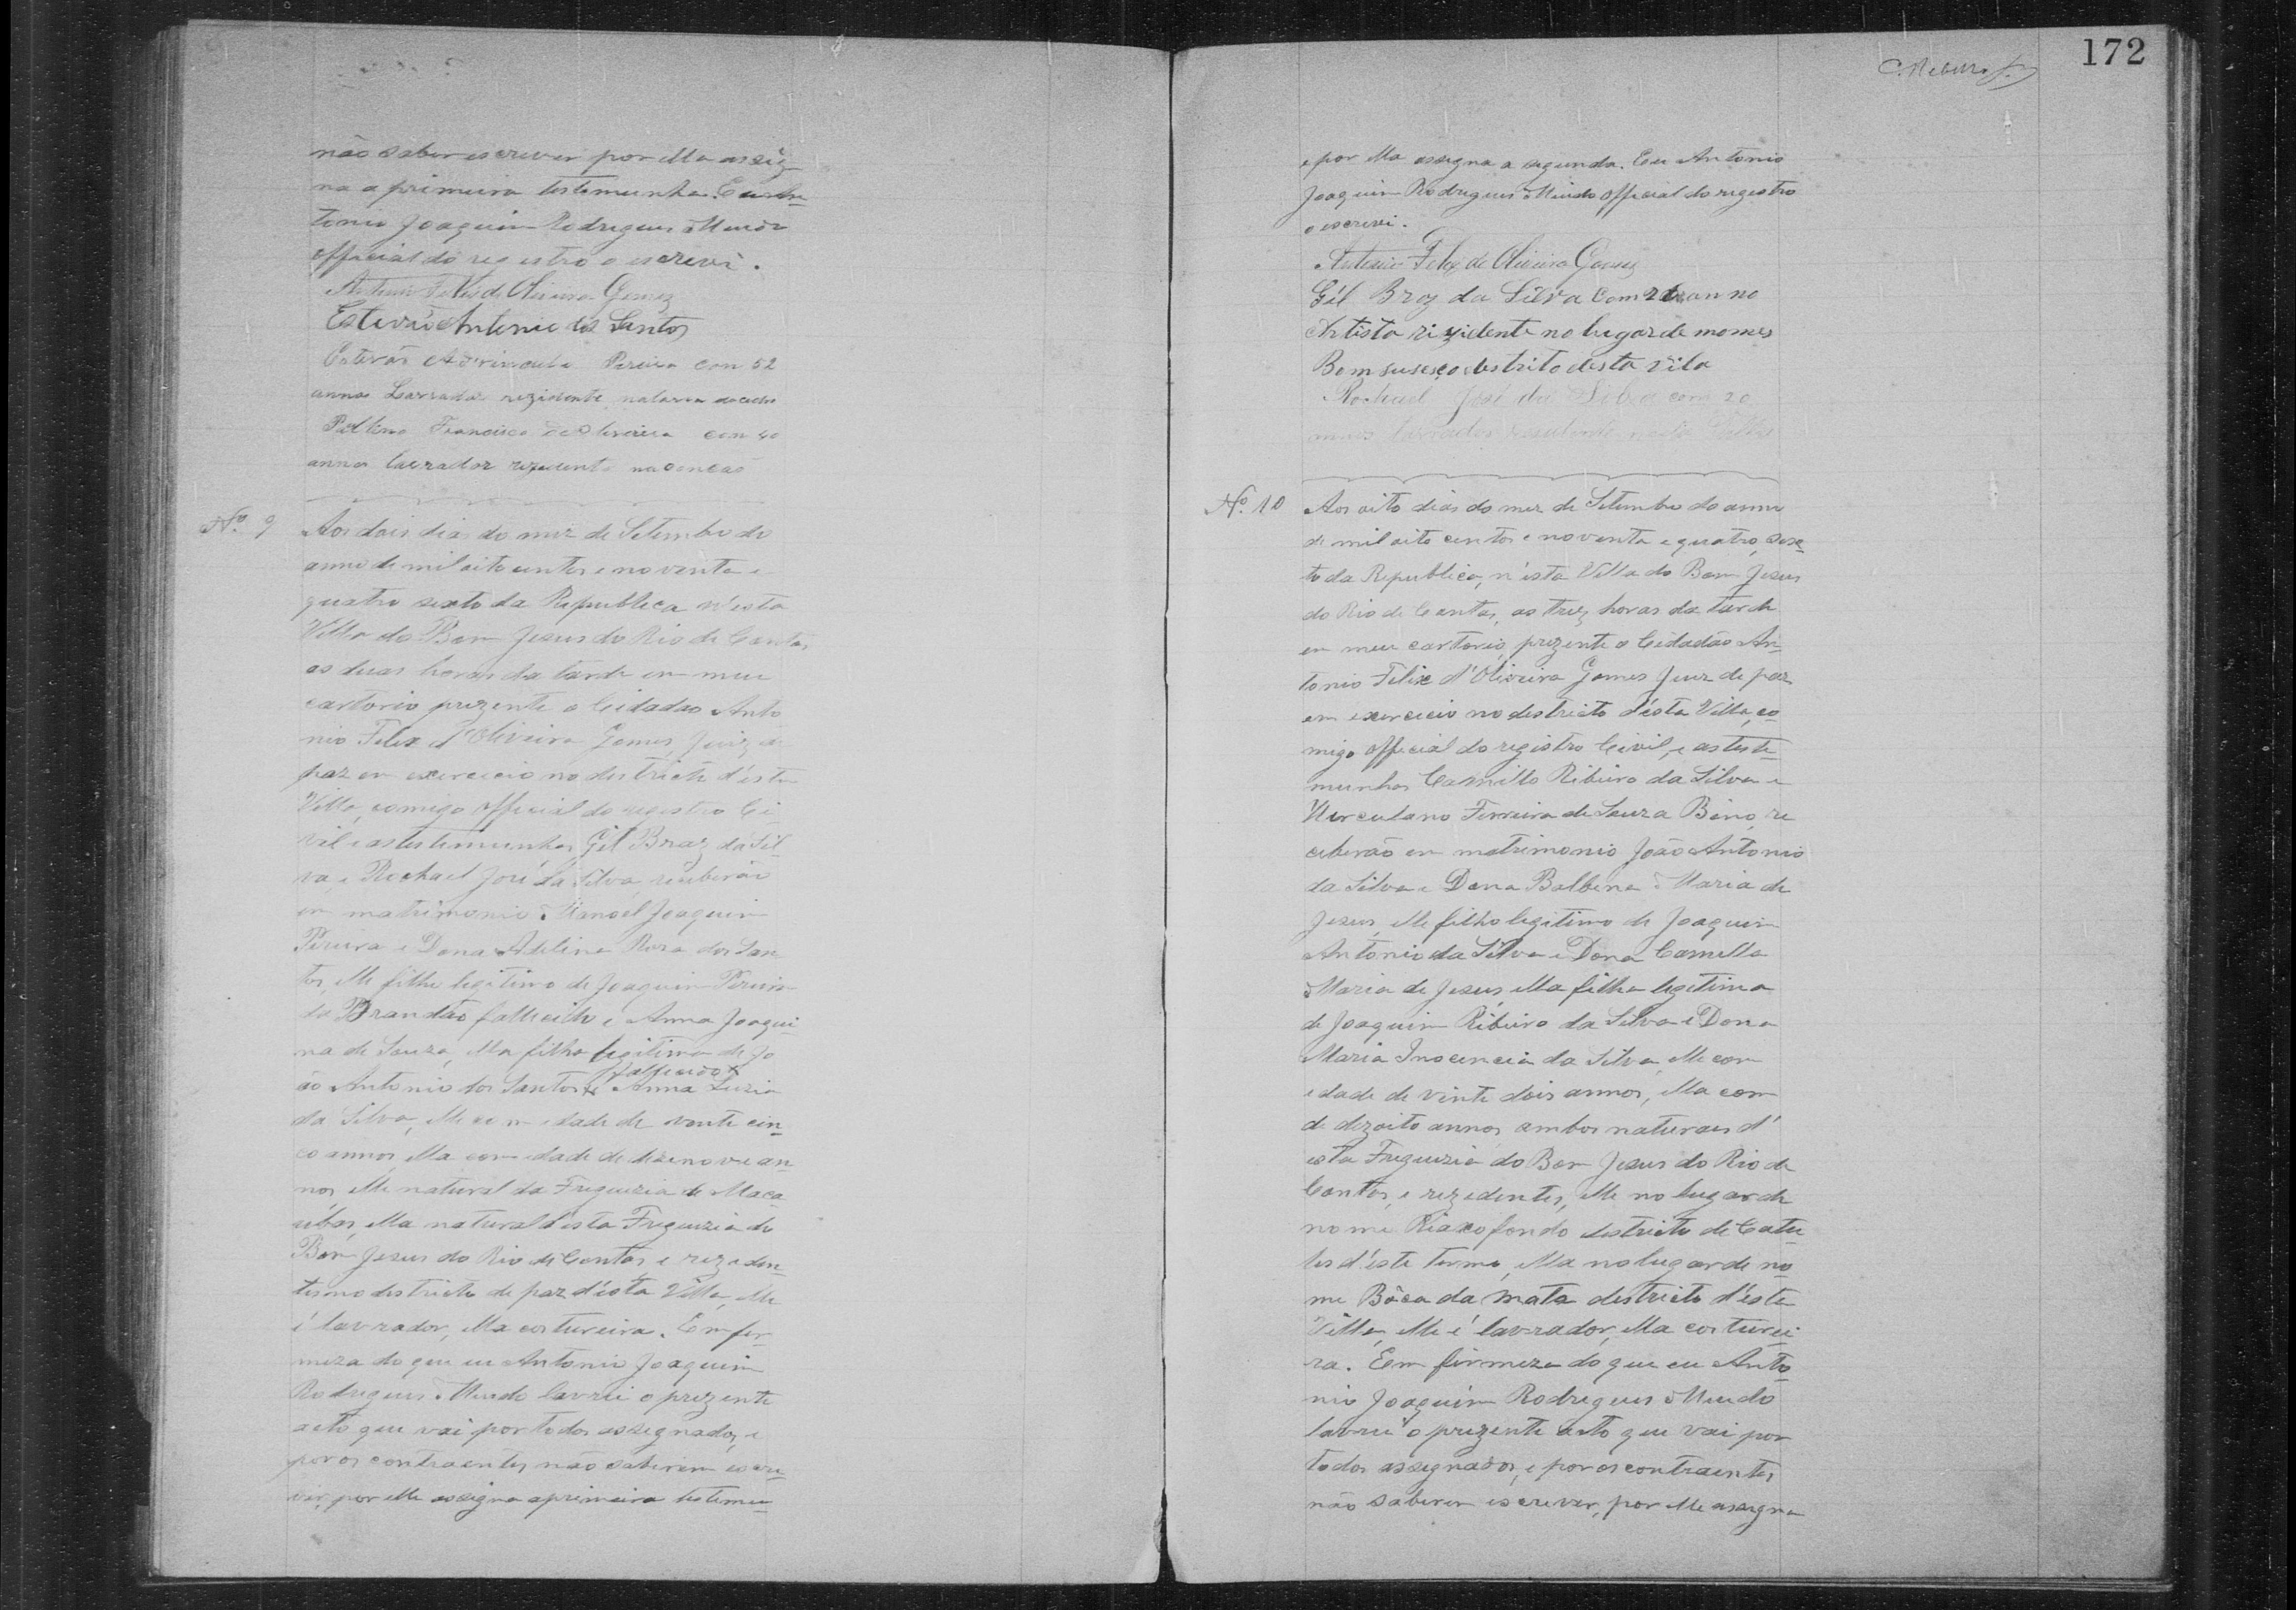 não saber escrever por ella assig
na a primeira testemunha. Eu An
tonio Joaquim Rodrigues Mundo
official do registro o escrevi.
Antonio Felix de Oliveira Gomes
Estevão Antonio dos Santos
Estevão Pereira com 52
annos Lavrador rezidente
Francisco de Oliveira com 40
annos lavrador rezidente
Nº. 9
Aos dois dias do mez de Setembro do
anno de mil oito centos e noventa e
quatro sexto da Republica n'esta
Villa do Bom Jesus do Rio de Contas
as duas horas da tarde em meu
cartorio prezente o Cidadão Anto
nio Felix d'Oliveira Gomes Juiz de
paz em exercicio no destricto d'esta
Villa, comigo official do registro Ci
vil e as testimunhas Gil Braz da Sil-
va e Rachael José da Silva receberão
em matrimonio Manoel Joaquim
Pereira e Dona Adelina Roza dos San
tos, elle filho legitimo de Joaquim Pereira
da Brandão fallecido e Anna Joaqui
na de Souza, ella filha legitima de Jo
ão Antonio dos Santos fallecido e Anna Luzia
da Silva, elle com idade de vente cin
co annos, ella com idade de dezenove an
nos elle natural da Freguezia de Maca
úbas, ella natural d'esta Freguezia do
Bom Jesus do Rio de Contas e reziden
tes no destricto de paz d'ésta Villa, elle
é lavrador, ella costureira. Em fir
meza do que eu Antonio Joaquim
Rodrigues Mundo lavrei o prezente
acto que vai por todos assegnados, e
por os contraentes não saberem escre
ver, por elle assigna a primeira testemu
172
e por ella assegna a segunda. Eu Antonio
Joaquim Rodrigues Mundo official do registro
o escrevi.
Antonio Felix de Oliveira Gomes
Gil Braz da Silva com anno
Artista rizidente no lugar de momes
Bom susesço destrito desta vila
Rachael José da Silva com 20
annos lavrador rezidente nesta Villa
Nº. 10
Aos oito dias do mez de Setembro do anno
de mil oito centos e noventa e quatro, sex
to da Republica, n'esta Villa do Bom Jesus
do Rio de Contas, as trez horas da tarde
em meu cartorio, prezente o Cidadão An
tonio Felix d'Oliveira Gomes Juiz de paz
em exercicio no destricto d'ésta Villa, co
migo official do registro Civil, e as teste
munhas Camillo Ribeiro da Silva e
Hirculano Ferreira de Souza Bino, re
ceberão em matrimonio João Antonio
da Silva e Dona Balbina Maria de
Jesus, elle filho legitimo de Joaquim
Antonio da Silva e Dona Camilla
Maria de Jesus, ella filha legitima
de Joaquim Ribeiro da Silva e Dona
Maria Inocencia da Silva, elle com
idade de vinte dois annos, ella com
de dezoito annos ambos naturaes d'
esta Freguezia do Bom Jesus do Rio de
Contas, e rezedentes, elle no lugar de
nome Riaxo fondo destricto de Catu
les d'éste termo, ella no lugar de no
me Bôca da Mata destricto d'ésta
Villa, elle é lavrador, ella costurei
ra. Em firmeza do que eu Anto
nio Joaquim Rodrigues Mundo
lavrei o prezente acto que vai por
todos assegnados, e por os contraentes
não saberem escrever, por elle assegna